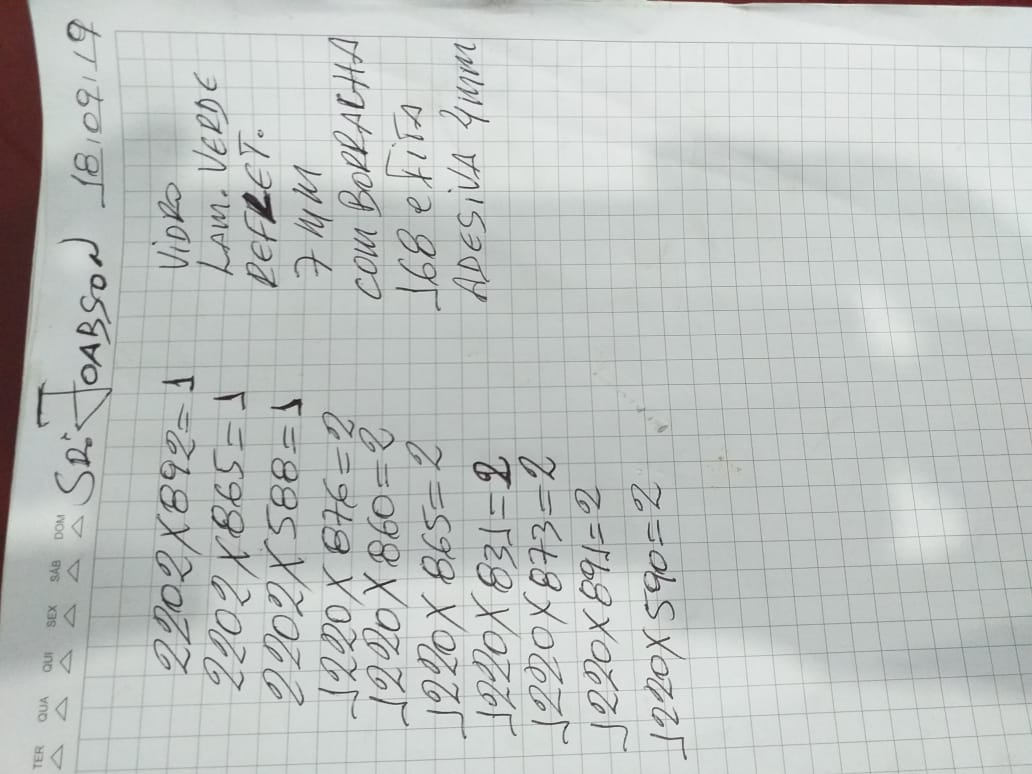 TER QUA QUI SEX SÁB DOM
SR. JOABSON 18/09/19
2202X892=1
2202X865=1
2202X588=1
1220X876=2
1220X860=2
1220X865=2
1220X831=2
1220X873=2
1220X891=2
1220X590=2
VIDRO
LAM. VERDE
REFLET.
7 MM
COM BORRACHA
168 e FITA
ADESIVA 4MM